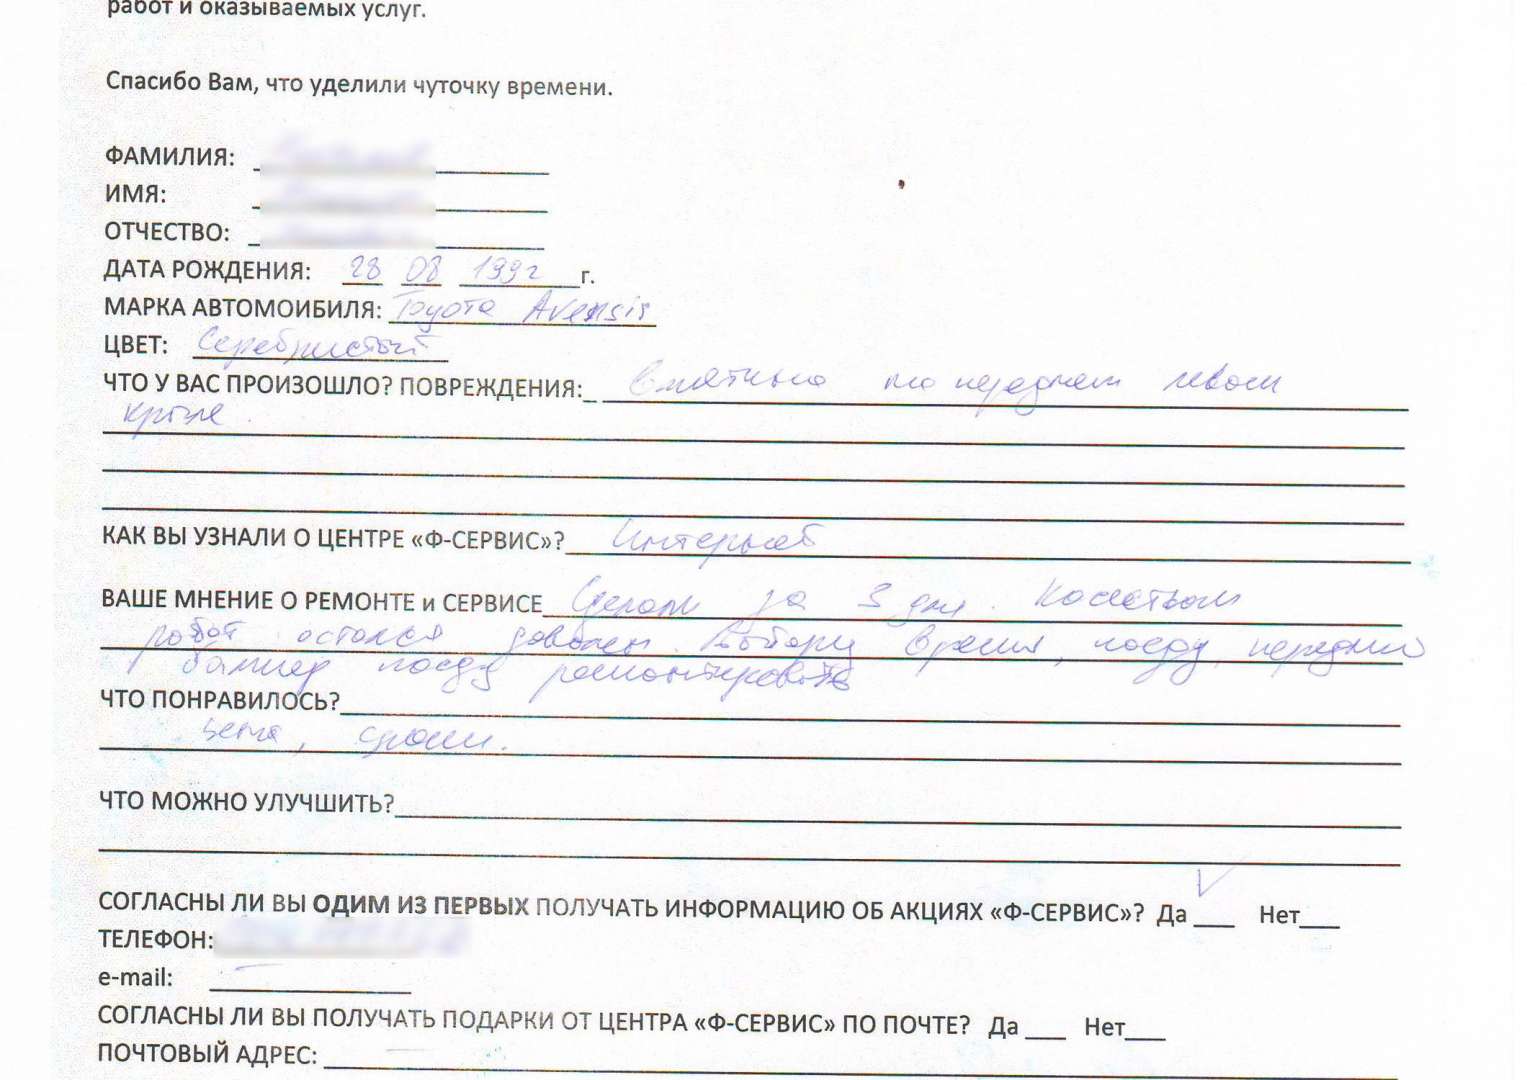 работ и оказываемых услуг.
Спасибо Вам, что уделили чуточку времени.
ФАМИЛИЯ:
ИМЯ:
ОТЧЕСТВО:
ДАТА РОЖДЕНИЯ: 28 08 1992 г.
МАРКА АВТОМОИБИЛЯ: Toyota Avensis
ЦВЕТ: Серебристый
ЧТО У ВАС ПРОИЗОШЛО? ПОВРЕЖДЕНИЯ: Вмятина на переднем левом
крыле.
КАК ВЫ УЗНАЛИ О ЦЕНТРЕ «Ф-СЕРВИС»? Интернет
ВАШЕ МНЕНИЕ О РЕМОНТЕ и СЕРВИСЕ Сделали за 3 дня. Качеством
работ остался доволен. Выберу время, поеду передний
бампер поеду ремонтировать
ЧТО ПОНРАВИЛОСЬ?
цена, сроки.
ЧТО МОЖНО УЛУЧШИТЬ?
СОГЛАСНЫ ЛИ ВЫ ОДИМ ИЗ ПЕРВЫХ ПОЛУЧАТЬ ИНФОРМАЦИЮ ОБ АКЦИЯХ «Ф-СЕРВИС»? Да ___ Нет___
ТЕЛЕФОН:
e-mail:
СОГЛАСНЫ ЛИ ВЫ ПОЛУЧАТЬ ПОДАРКИ ОТ ЦЕНТРА «Ф-СЕРВИС» ПО ПОЧТЕ? Да ___ Нет___
ПОЧТОВЫЙ АДРЕС: